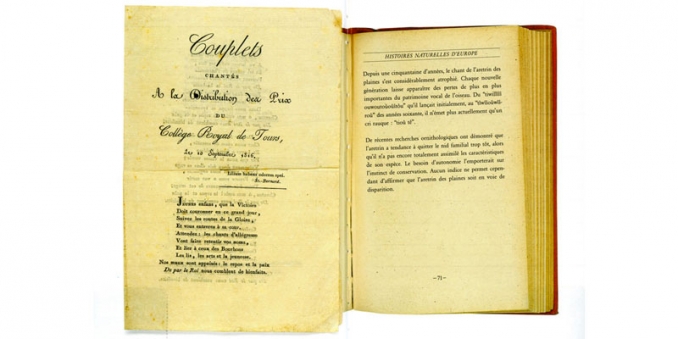 Couplets
CHANTÉS
A la Distribution des Prix
DU
Collège Royal de Tours,
St.-Bernard.
Jeunes enfans, que la Victoire
Doit couronner en ce grand jour,
Suivez les routes de la Gloire,
Et vous entrerez à sa cour.
Attendez: les chants d'allégresse
Vont faire retentir vos noms,
Et lier à ceux des Bourbons
Les lis, les arts et la jeunesse.
Nos maux sont appaisés: le repos et la paix
De par le Roi nous comblent de bienfaits.
HISTOIRES NATURELLES D'EUROPE
Depuis une cinquantaine d'années, le chant de l'arétin des
plaines s'est considérablement atrophié. Chaque nouvelle
génération laisse apparaître des pertes de plus en plus
importantes du patrimoine vocal de l'oiseau. Du
qu'il lançait initialement, au
des années soixante, il n'émet plus actuellement qu'un
cri rauque :
De récentes recherches ornithologiques ont démontré que
l'arétin a tendance à quitter le nid familial trop tôt, alors
qu'il n'a pas encore totalement assimilé les caractéristiques
de son espèce. Le besoin d'autonomie l'emporterait sur
l'instinct de conservation. Aucun indice ne permet cepen-
dant d'affirmer que l'arétin des plaines soit en voie de
disparition.
– 71 –